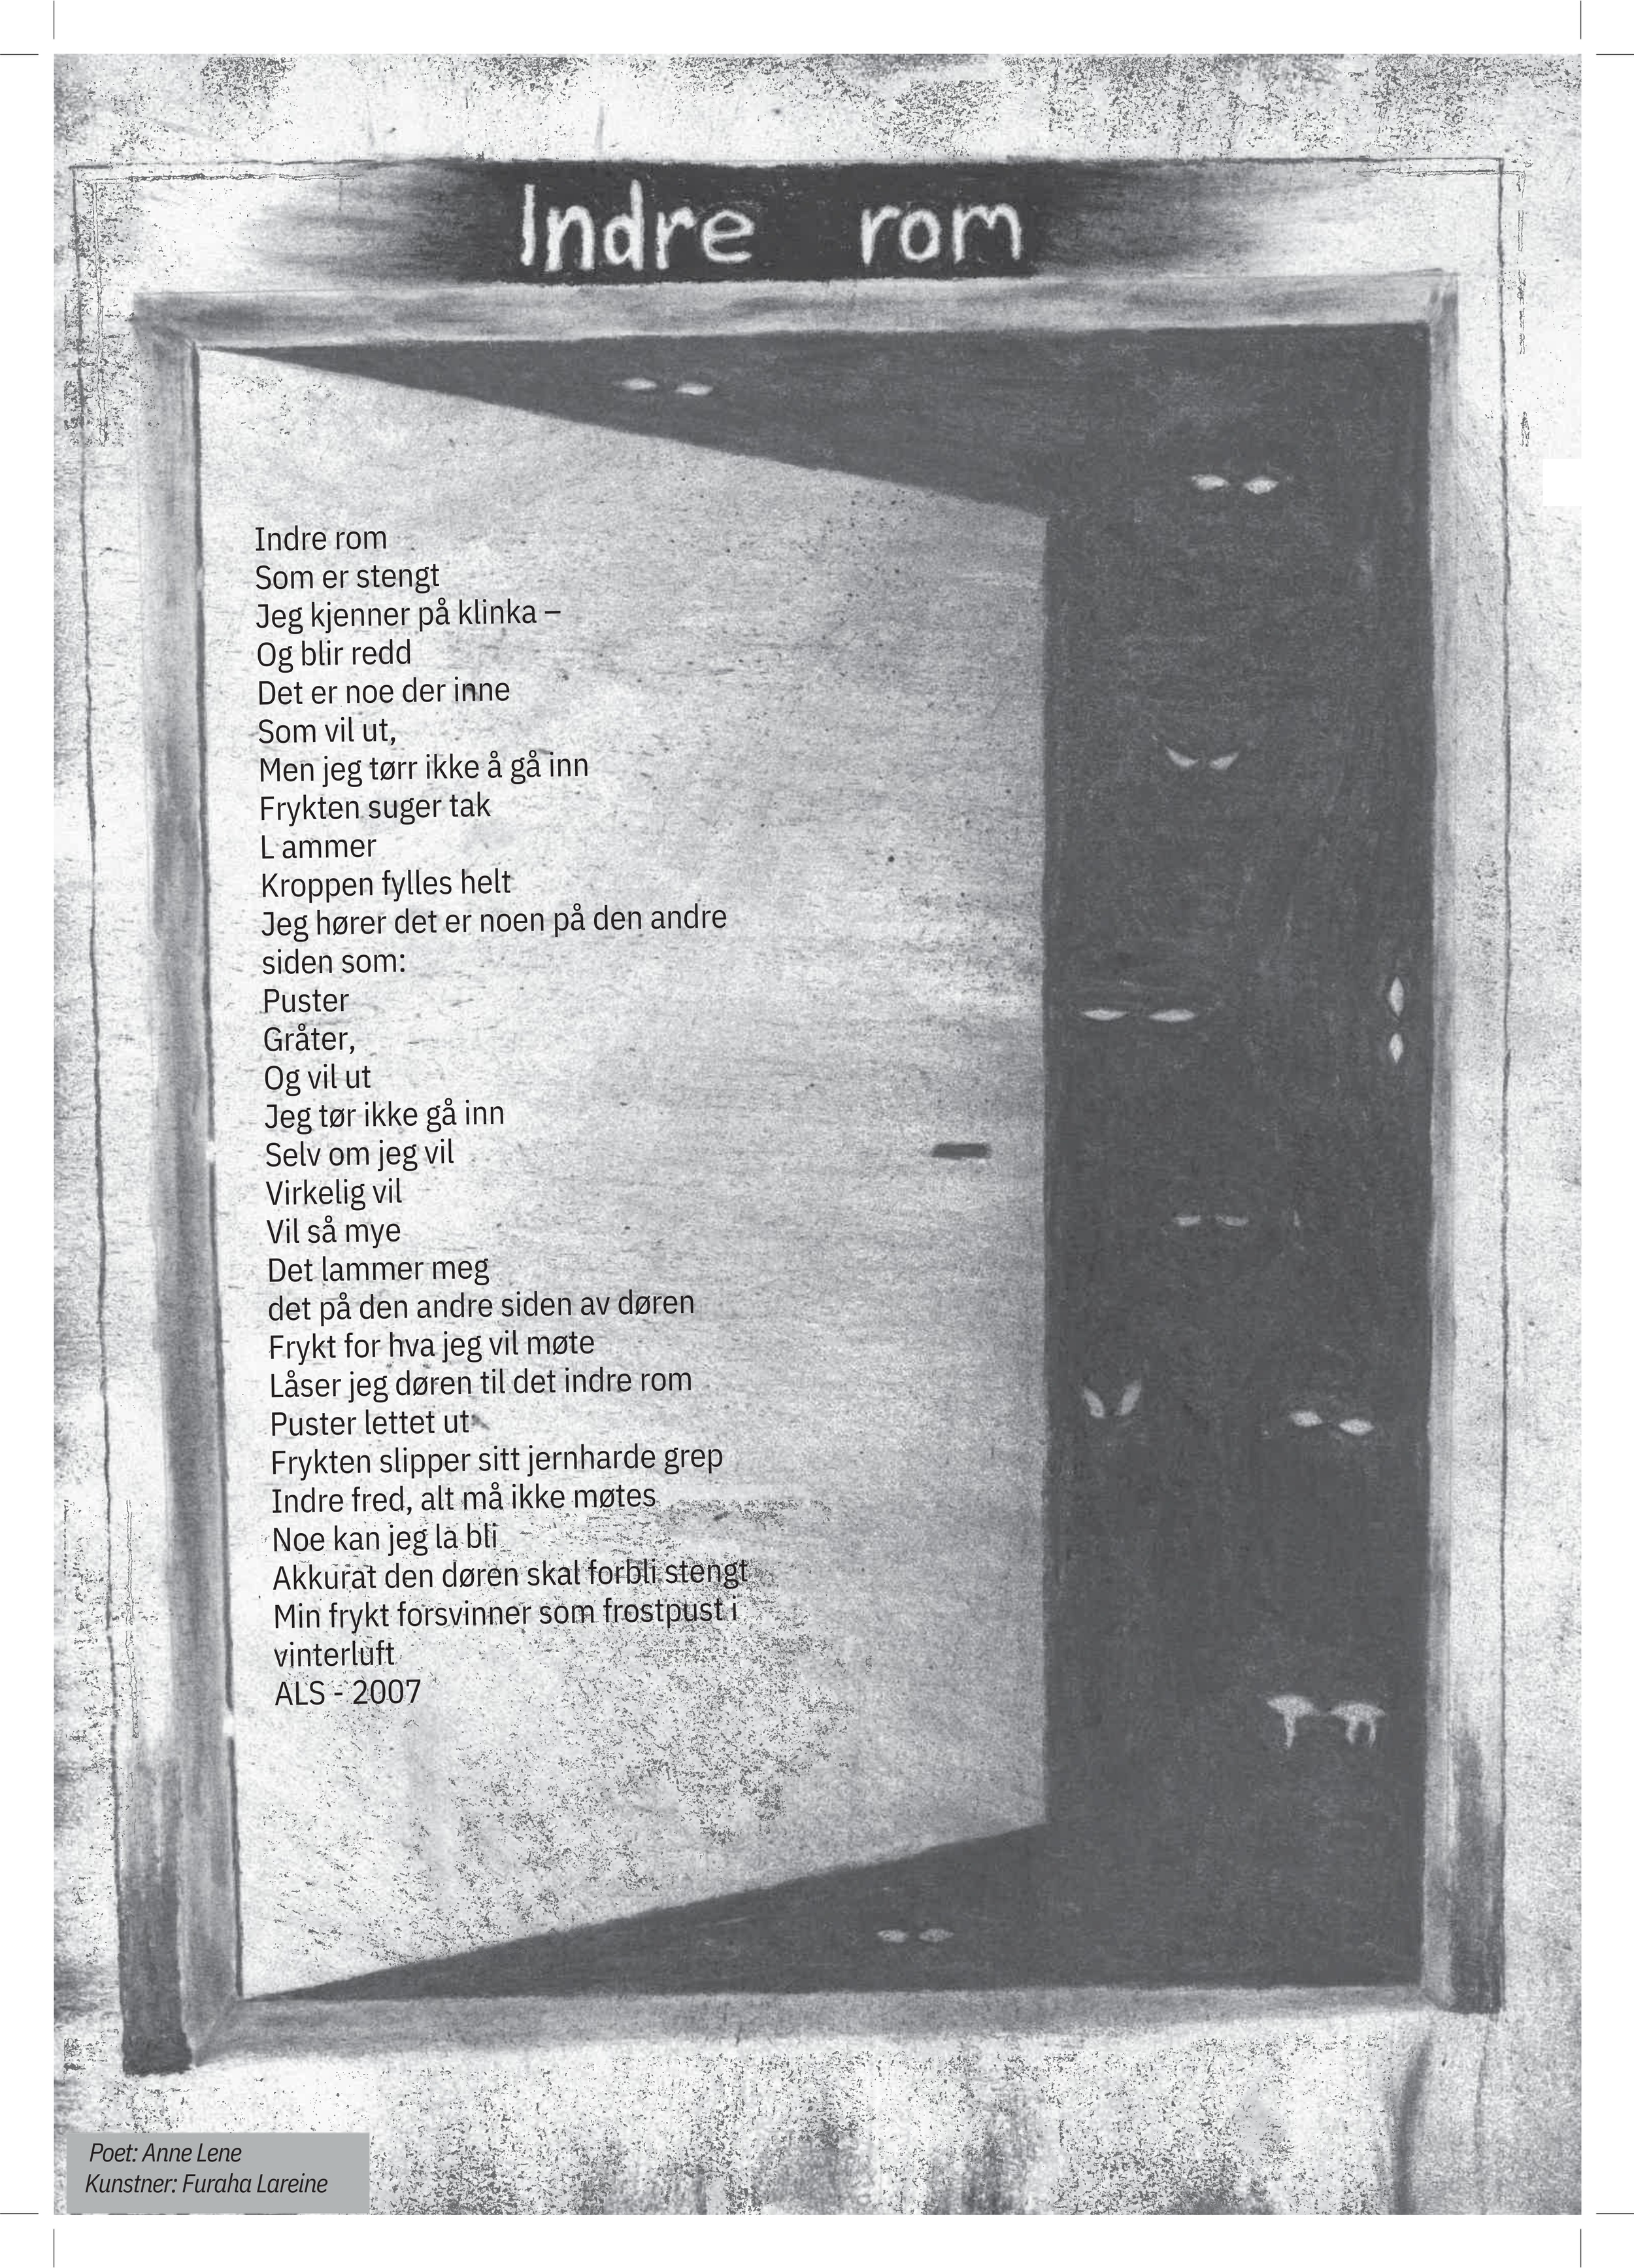 Indre rom
Indre rom
Som er stengt
Jeg kjenner på klinka –
Og blir redd
Det er noe der inne
Som vil ut,
Men jeg tørr ikke å gå inn
Frykten suger tak
L ammer
Kroppen fylles helt
Jeg hører det er noen på den andre
siden som:
Puster
Gråter,
Og vil ut
Jeg tør ikke gå inn
Selv om jeg vil
Virkelig vil
Vil så mye
Det lammer meg
det på den andre siden av døren
Frykt for hva jeg vil møte
Låser jeg døren til det indre rom
Puster lettet ut
Frykten slipper sitt jernharde grep
Indre fred, alt må ikke møtes
Noe kan jeg la bli
Akkurat den døren skal forbli stengt
Min frykt forsvinner som frostpust i
vinterluft
ALS - 2007
Poet: Anne Lene
Kunstner: Furaha Lareine